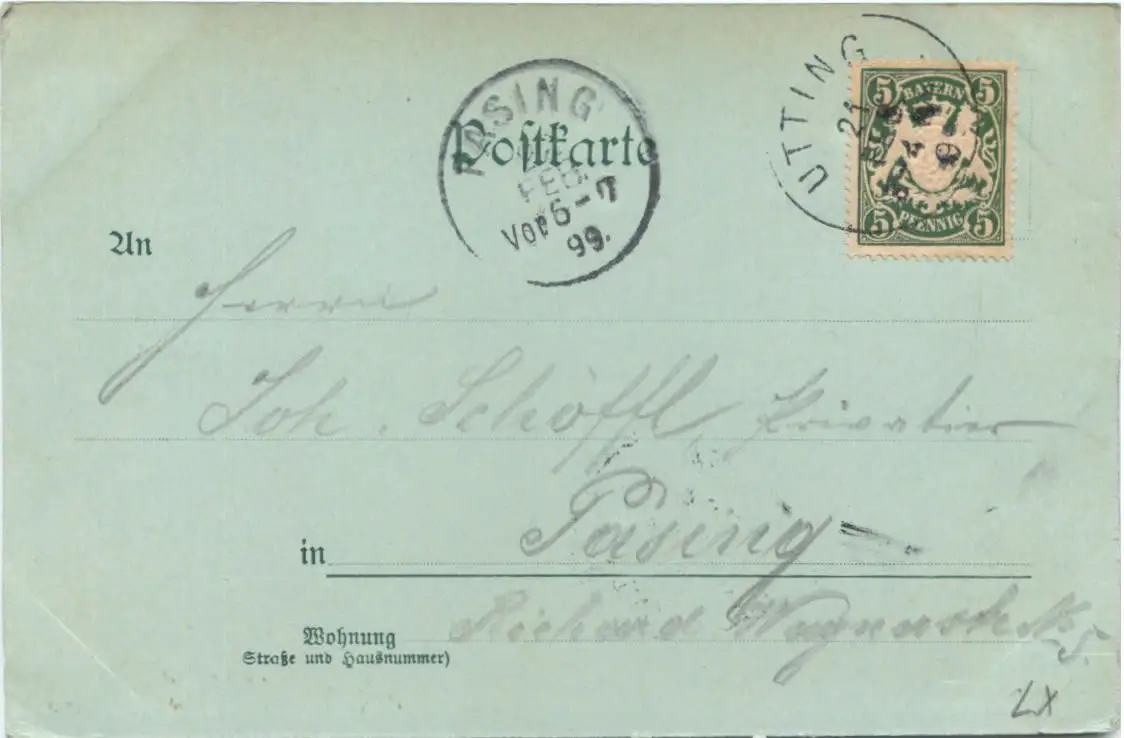 UTTING
21
BAYERN
5 5
5 5
PFENNIG
PASING
FEB.
Vor 6-7
99.
Postkarte
An
Herrn
Joh. Schöffl, Privatier
in Pasing
Wohnung Richard Wagnerstr. Nr. 5.
Straße und Hausnummer)